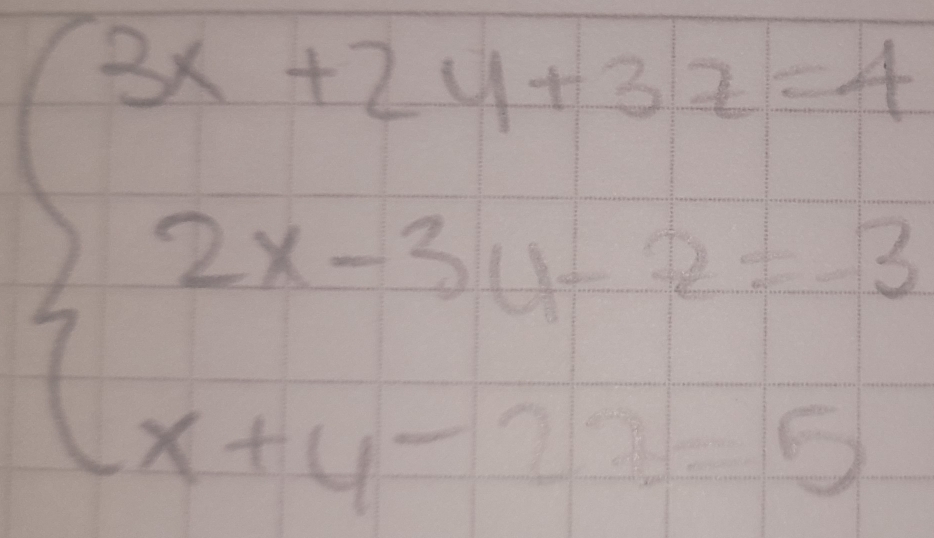 3x + 2y + 3z = 4
2x - 3y - z = -3
x + y - 2z = 5